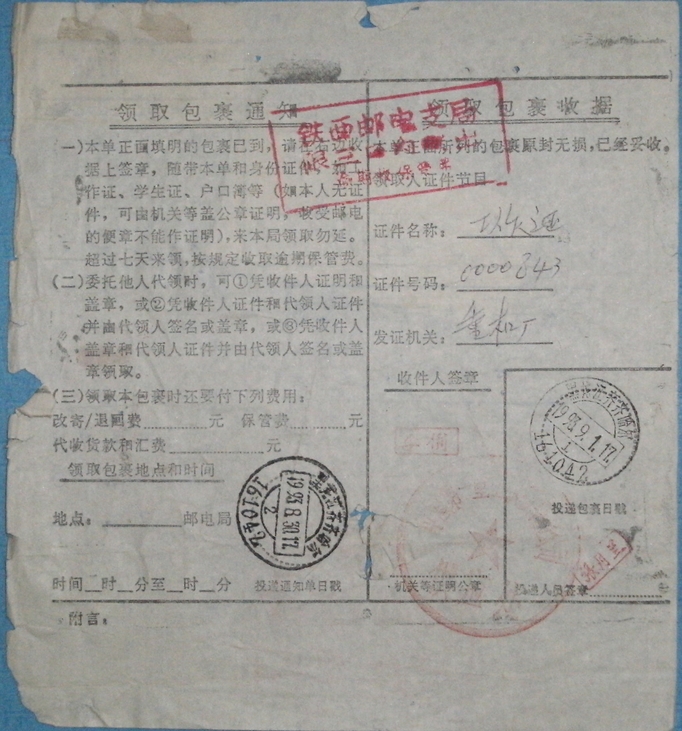 领取包裹通知
(一)本单正面填明的包裹已到，请在右边收
据上签章，随带本单和身份证件、如工
作证、学生证、户口簿等（如本人无证
件，可由机关等盖公章证明，收发邮电
的便章不能作证明），来本局领取勿延。
超过七天来领，按规定收取逾期保管费。
(二)委托他人代领时，可①凭收件人证明和
盖章，或②凭收件人证件和代领人证件
并由代领人签名或盖章，或③凭收件人
盖章和代领人证件并由代领人签名或盖
章领取。
(三)领取本包裹时还要付下列费用：
改寄/退回费 元 保管费 元
代收货款和汇费 元
领取包裹地点和时间
地点： 邮电局
时间 时 分至 时 分
投递通知单日戳
附言：
领取包裹收据
本单正面所列的包裹原封无损，已经妥收。
领取人证件节目
证件名称：
证件号码：0000843
发证机关：重机厂
收件人签章
机关等证明公章
投递包裹日戳
投递人员签章
铁西邮电支局
1993.8.30.17
2
161042
1993.9.1.17
1
161042